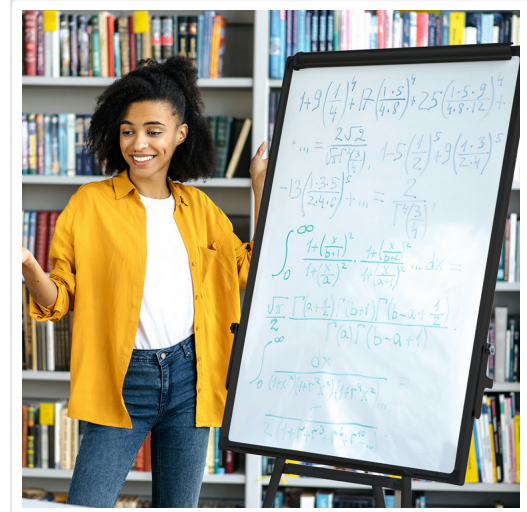 1+9(1/4)^4+17(1·5/4·8)^4+25(1·5·9/4·8·12)^4+
... = 2√2/√π Γ²(3/4), 1-5(1/2)^5+9(1·3/2·4)^5
-13(1·3·5/2·4·6)^5+... = 2/Γ⁴(3/4),
∫₀^∞ 1+(x/b+1)²/1+(x/a)² · 1+(x/b+2)²/1+(x/a+1)² ... dx =
√π/2 Γ(a+1/2)Γ(b+1)Γ(b-a+1/2)/Γ(a)Γ(b-a+1)
∫₀^∞ dx/(1+x²)(1+r²x²)(1+r⁴x²... =
2(1+r+r³+r⁶+r¹⁰+...)